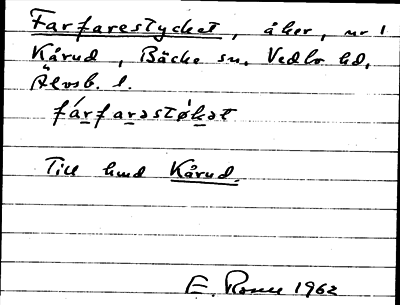 Farfarestycket, åker, nr 1
Kårud, Bäcke sn, Vedbo hd,
Älvsb. l.
fárfarəstø̀kət
Till hmd Kårud.
E. 1962